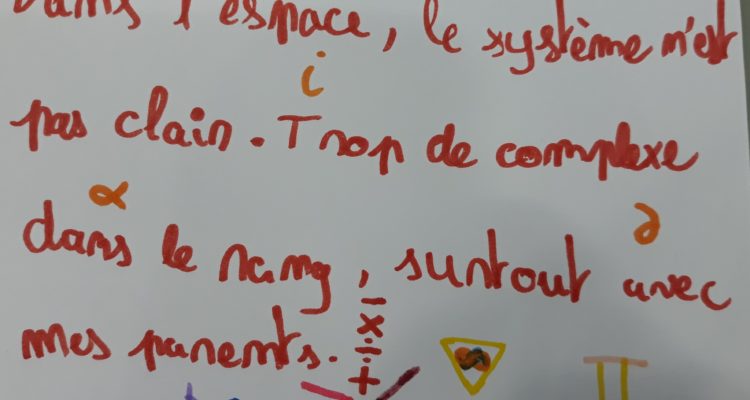 Dans l'espace, le système n'est
i
pas clair. Trop de complexe
α ∂
dans le rang, surtout avec
mes parents. - × ÷ +